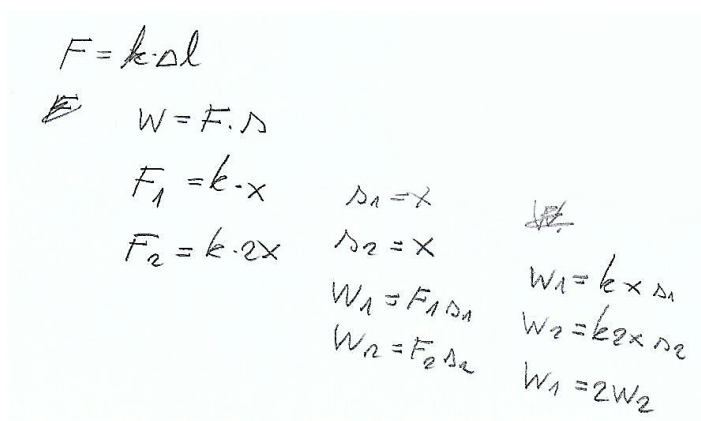 F = k·Δl
W = F·s
F₁ = k·x
F₂ = k·2x
s₁ = x
s₂ = x
W₁ = F₁s₁
W₂ = F₂s₂
W₁ = kxs₁
W₂ = k2xs₂
W₁ = 2W₂